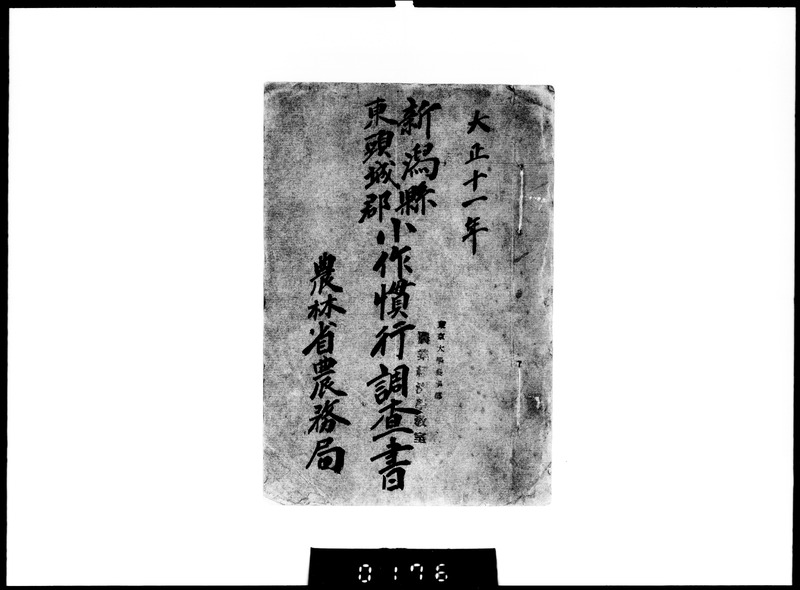 大正十一年
新潟縣
東頸城郡
小作慣行調査書
東京大學農學部
農業經濟學教室
農林省農務局
0176